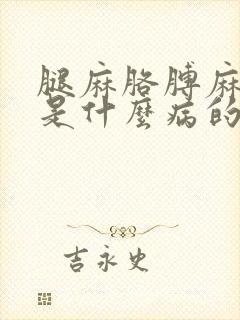 腿麻胳膊麻
是什麼病的
吉永史